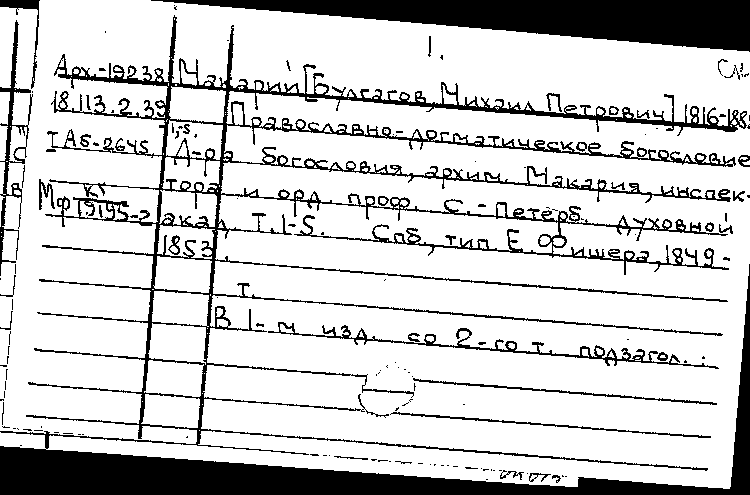 1.
Арх.-19238 Макарий [Булгагов, Михаил Петрович], 1816-188
18.113.2.39 Православно-догматическое богословие
т.1-5.
I Аб-2645 Д-ра богословия, архим. Макария, инспек-
Мф кг/Т9195-2 тора и орд. проф. С.-Петерб. духовной
акад. Т.1-5. Спб., тип. Е. Фишера, 1849-
1853.
т.
В 1-м изд. со 2-го т. подзагол.: